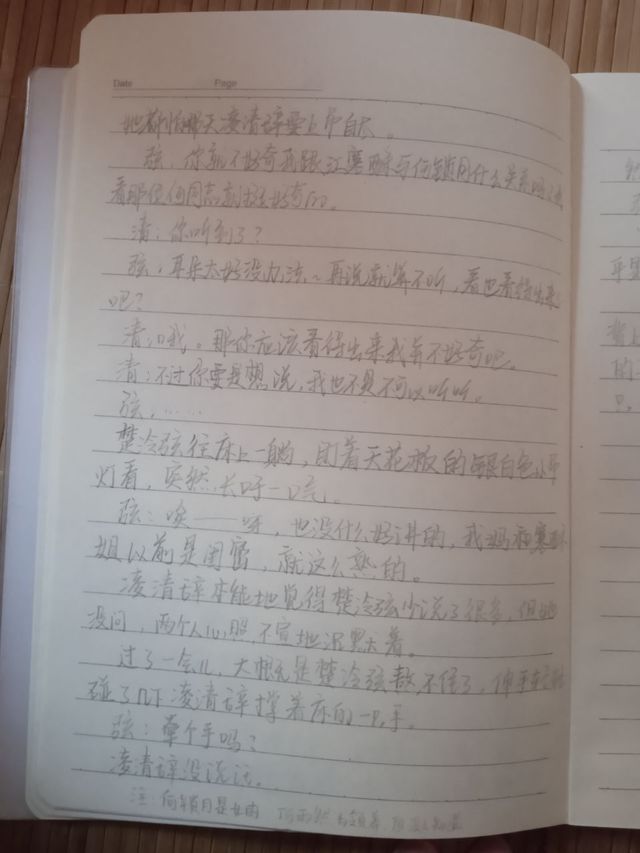 Date Page
她都怕哪天凌清辞要上吊自杀。
弦：你就不好奇我跟江寒酥与何锁月什么关系吗？我
看那位何同志就挺好奇的。
清：你听到了？
弦：耳朵太好没办法~再说就算不听，看也看得出来
吧？
清：哦。那你应该看得出来我并不好奇吧。
清：不过你要是想说，我也不是不可以听听。
弦：……
楚冷弦往床上一躺，盯着天花板的银白色吊
灯看，突然长吁一口气。
弦：唉——呀，也没什么好讲的，我妈和寒酥
姐以前是闺密，就这么熟的。
凌清辞本能地觉得楚冷弦少说了很多，但她
没问，两个人心照不宣地沉默着。
过了一会儿，大概是楚冷弦熬不住了，伸手
碰了几下凌清辞撑着床的一只手。
弦：牵个手吗？
凌清辞没说话。
注：何锁月是女的